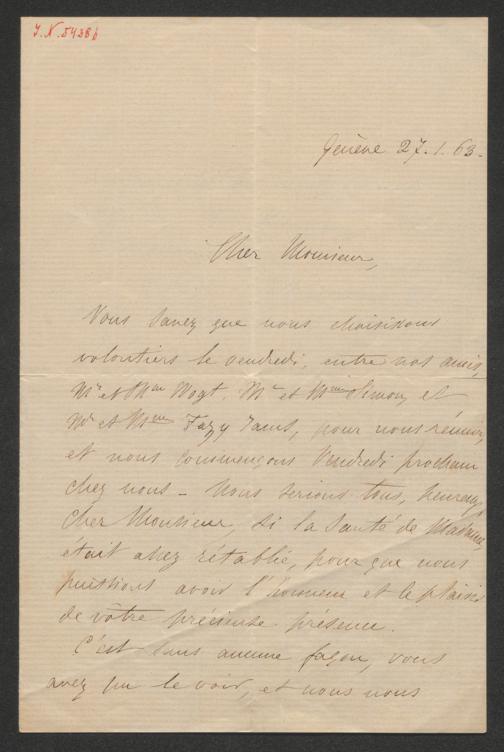 J.N. 54386
Genève 27.1.63.
Cher Monsieur,
Vous savez que nous choisissons
volontiers le vendredi, entre nos amis,
Mr et Mme Vogt, Mr et Mme Simon, et
Mr et Mme Fazy James, pour nous réunir,
et nous commençons Vendredi prochain
chez nous – Nous serions tous, heureux,
cher Monsieur, si la Santé de Madame
était assez rétablie, pour que nous
puissions avoir l'honneur et le plaisir
de vôtre précieuse présence.
C'est sans aucune façon, vous
avez pu le voir, et nous nous